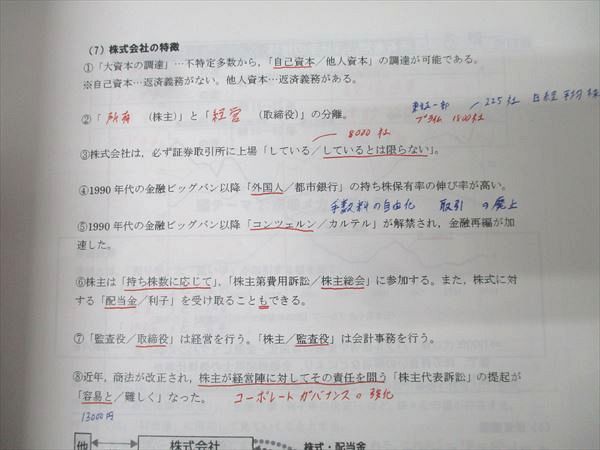 (7) 株式会社の特徴
①「大資本の調達」…不特定多数から，「自己資本／他人資本」の調達が可能である。
※自己資本…返済義務がない。他人資本…返済義務がある。
東証一部 ／225社 日経平均株
プライム 1800社
②「所有（株主）」と「経営（取締役）」の分離。
8000社
③株式会社は，必ず証券取引所に上場「している／しているとは限らない」。
④1990年代の金融ビッグバン以降「外国人／都市銀行」の持ち株保有率の伸び率が高い。
手数料の自由化 取引の廃止
⑤1990年代の金融ビッグバン以降「コンツェルン／カルテル」が解禁され，金融再編が加
速した。
⑥株主は「持ち株数に応じて」，「株主第費用訴訟／株主総会」に参加する。また，株式に対
する「配当金／利子」を受け取ることもできる。
⑦「監査役／取締役」は経営を行う。「株主／監査役」は会計事務を行う。
⑧近年，商法が改正され，株主が経営陣に対してその責任を問う「株主代表訴訟」の提起が
「容易と／難しく」なった。 コーポレートガバナンスの強化
13000円
他 株式会社 株式・配当金